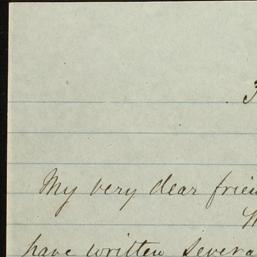 My very dear frien
have written severa